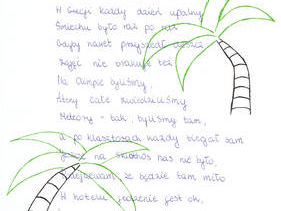 W Grecji każdy dzień upalny
Śmiechu było raz po raz
Gdyby nawet przyszedł deszcz
Zajęć nie brakuje też
Na Olimpie byliśmy,
Ateny całe zwiedziliśmy
Meteory - tak, byliśmy tam,
a po klasztorach każdy biegał sam
na Skiathos nas nie było,
że będzie tam miło
W hotelu jedzenie jest ok,